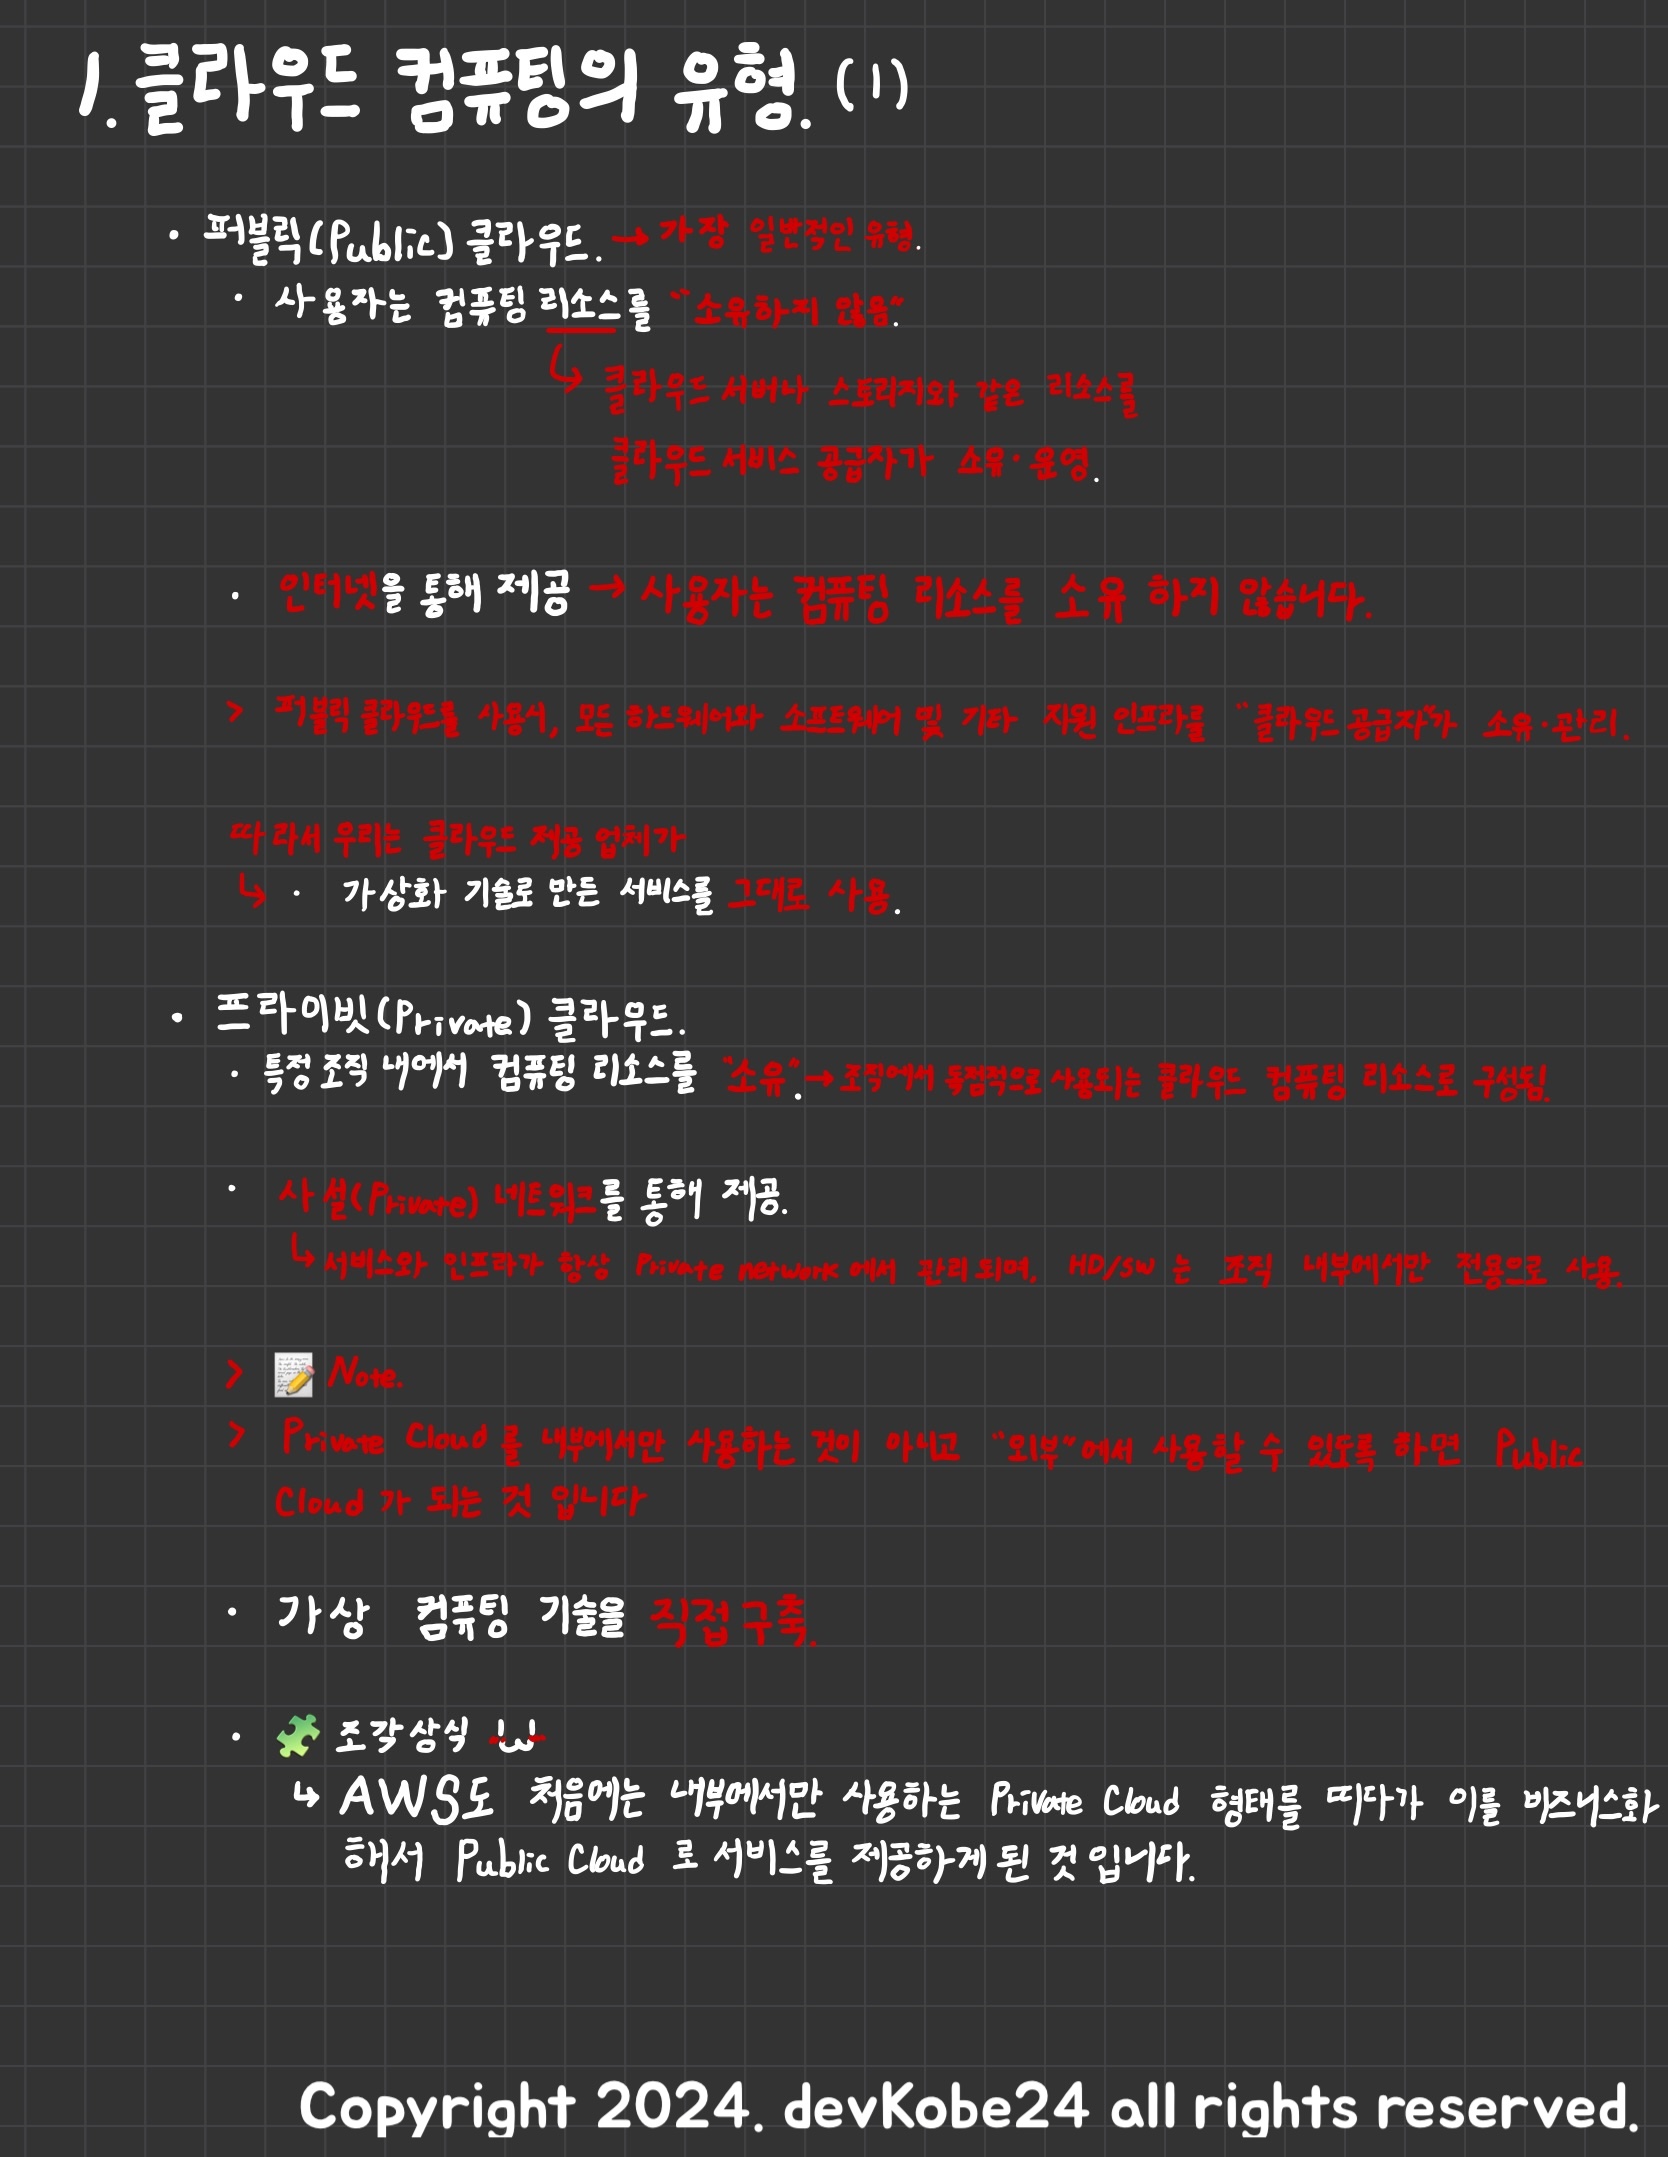 1. 클라우드 컴퓨팅의 유형. (1)
· 퍼블릭(Public) 클라우드. → 가장 일반적인 유형.
· 사용자는 컴퓨팅 리소스를 "소유하지 않음".
↳ 클라우드 서버나 스토리지와 같은 리소스를
클라우드 서비스 공급자가 소유·운영.
· 인터넷을 통해 제공 → 사용자는 컴퓨팅 리소스를 소유 하지 않습니다.
> 퍼블릭 클라우드를 사용시, 모든 하드웨어와 소프트웨어 및 기타 지원 인프라를 "클라우드 공급자"가 소유·관리.
따라서 우리는 클라우드 제공 업체가
↳ · 가상화 기술로 만든 서비스를 그대로 사용.
· 프라이빗(Private) 클라우드.
· 특정 조직 내에서 컴퓨팅 리소스를 "소유". → 조직에서 독점적으로 사용되는 클라우드 컴퓨팅 리소스로 구성됨.
· 사설(Private) 네트워크를 통해 제공.
↳ 서비스와 인프라가 항상 Private network 에서 관리 되며, HD/SW 는 조직 내부에서만 전용으로 사용.
> 📝 Note.
> Private Cloud 를 내부에서만 사용하는 것이 아니고 "외부"에서 사용할 수 있도록 하면 Public
Cloud 가 되는 것 입니다
· 가상 컴퓨팅 기술을 직접 구축.
· 🧩 조각상식
↳ AWS도 처음에는 내부에서만 사용하는 Private Cloud 형태를 띠다가 이를 비즈니스화
해서 Public Cloud 로 서비스를 제공하게 된 것 입니다.
Copyright 2024. devKobe24 all rights reserved.